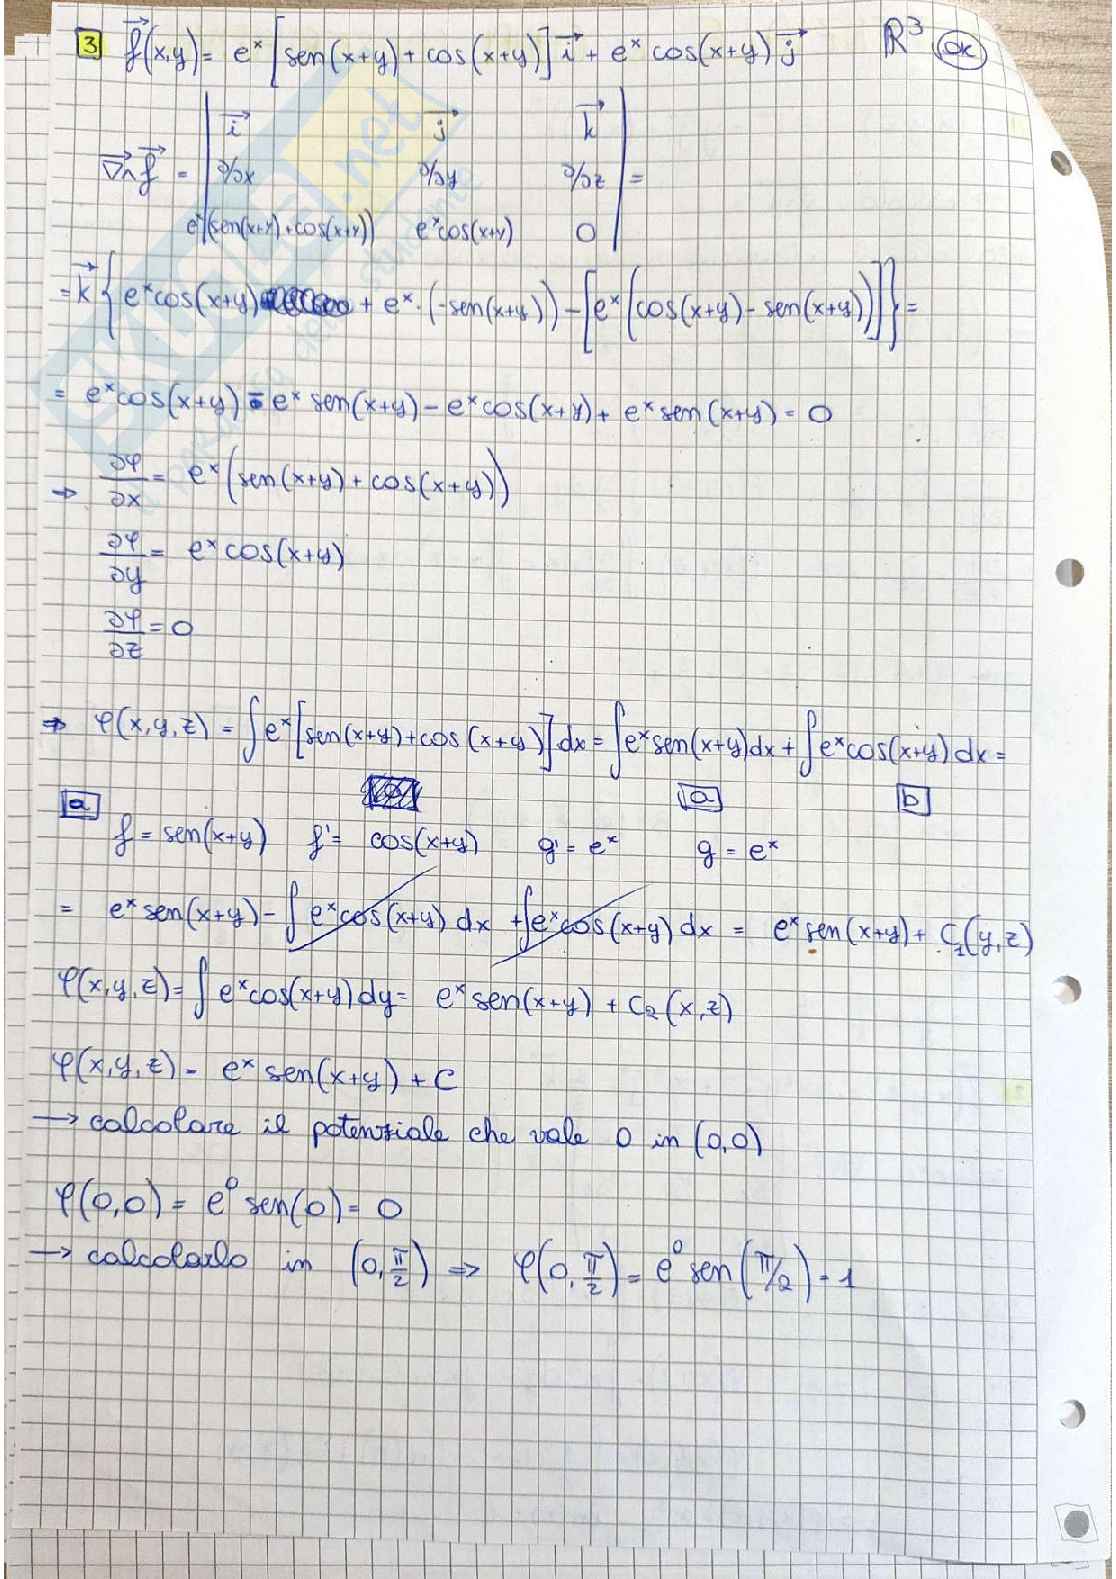 3 f⃗(x,y) = eˣ [sen(x+y) + cos(x+y)] i⃗ + eˣ cos(x+y) j⃗ ℝ³ OK
i⃗ j⃗ k⃗
∇⃗∧f⃗ = ∂/∂x ∂/∂y ∂/∂z =
eˣ(sen(x+y)+cos(x+y)) eˣcos(x+y) 0
= k⃗ { eˣcos(x+y) + eˣ·(-sen(x+y)) - [eˣ(cos(x+y) - sen(x+y))] } =
= eˣcos(x+y) - eˣ sen(x+y) - eˣcos(x+y) + eˣ sen(x+y) = 0
→ ∂φ/∂x = eˣ(sen(x+y) + cos(x+y))
∂φ/∂y = eˣ cos(x+y)
∂φ/∂z = 0
⇒ φ(x,y,z) = ∫eˣ[sen(x+y)+cos(x+y)]dx = ∫eˣsen(x+y)dx + ∫eˣcos(x+y)dx =
a a b
f = sen(x+y) f' = cos(x+y) g' = eˣ g = eˣ
= eˣ sen(x+y) - ∫eˣcos(x+y) dx + ∫eˣcos(x+y) dx = eˣ sen(x+y) + C₁(y,z)
φ(x,y,z) = ∫eˣcos(x+y)dy = eˣ sen(x+y) + C₂(x,z)
φ(x,y,z) = eˣ sen(x+y) + C
→ calcolare il potenziale che vale 0 in (0,0)
φ(0,0) = e⁰ sen(0) = 0
→ calcolarlo in (0,π/2) ⇒ φ(0,π/2) = e⁰ sen(π/2) = 1